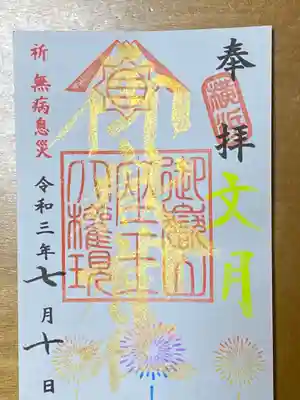 奉拝
文月
御嶽山
座王
大權現
祈 無病息災
令和三年七月十日